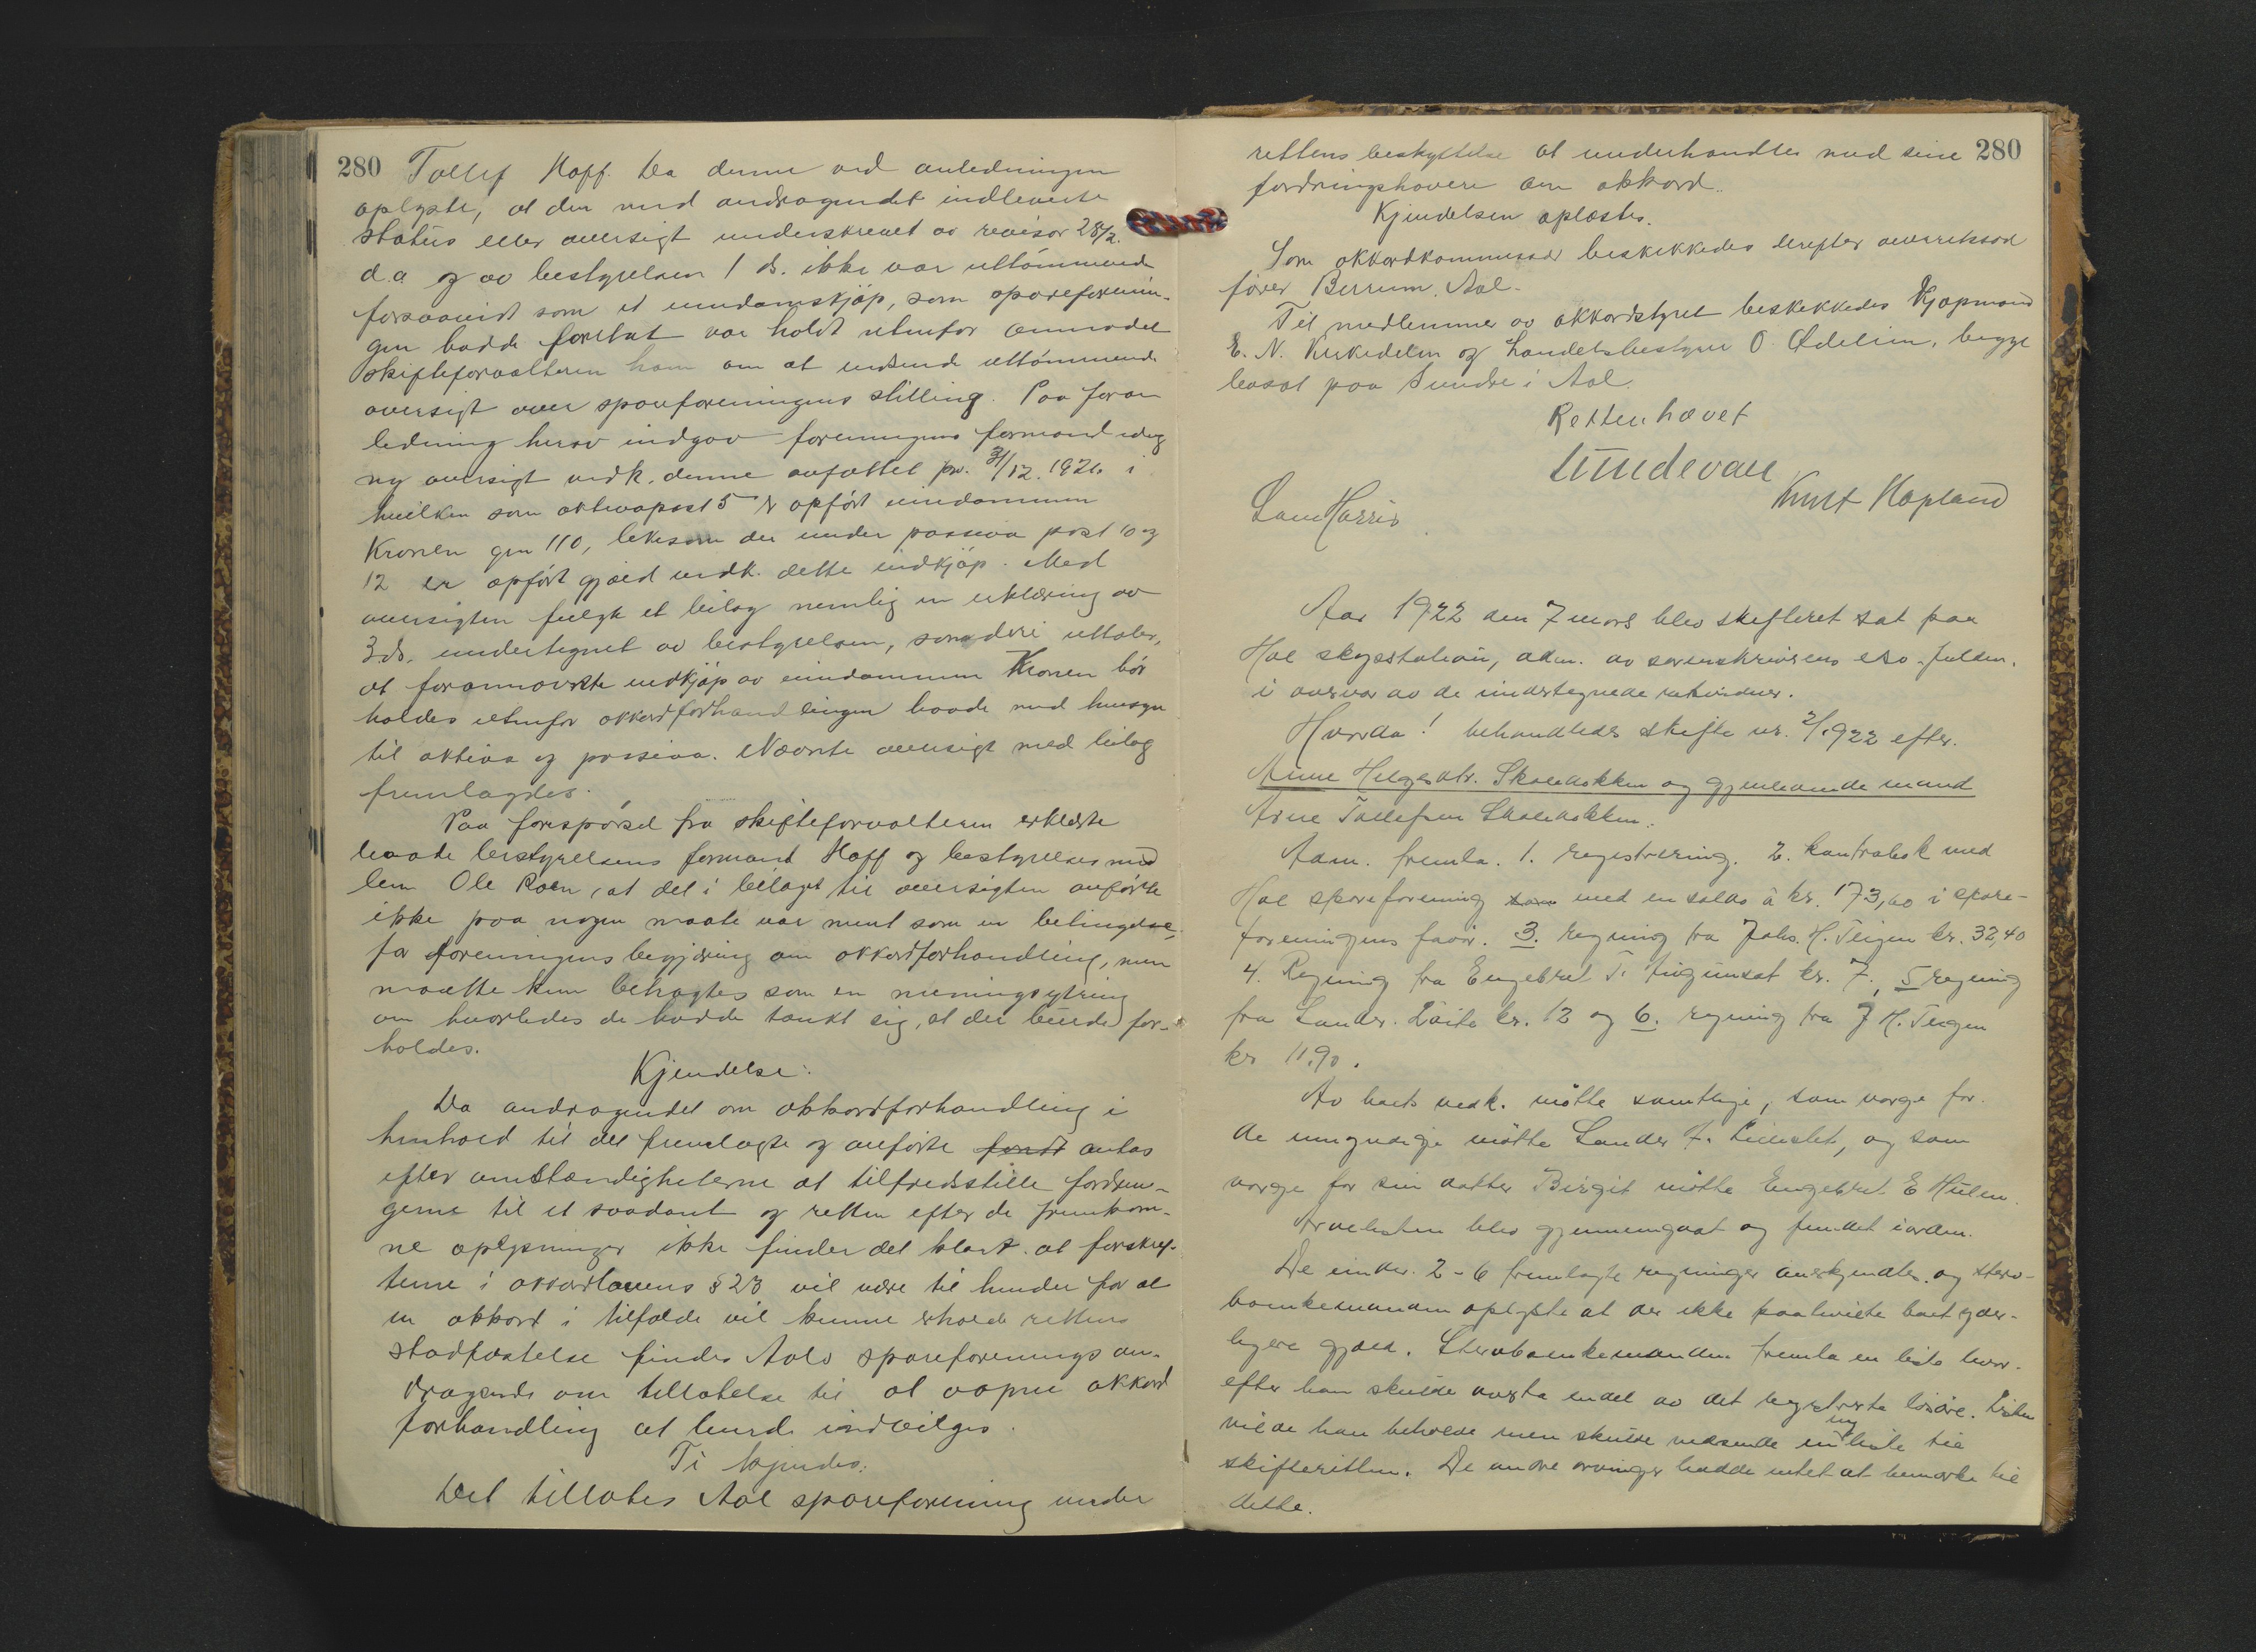 280
Tollef Hoff. Da denne ved anledningen
oplyste, at den med andragendet indleverte
status eller oversigt underskrevet av revisor 28/2.
d.a og av bestyrelsen 1 ds. ikke var uttømmende
forsaavidt som et eiendomskjøp, som spareforenin-
gen hadde foretat var holdt utenfor anmodet
skifteforvalteren ham om at indsende uttømmende
oversigt over spareforeningens stilling. Paa foran
ledning herav indgav foreningens formand idag
ny oversigt vedk. denne avfattet pr. 31/12. 1921. i
hvilken som aktivapost 5 er opført eiendommen
Kronen gnr 110, likesom der under passiva post 10 og
12 er opført gjæld vedk. dette indkjøp. Med
oversigten fulgte et bilag nemlig en erklæring av
3 ds. undertegnet av bestyrelsen, som deri uttaler,
at forannævnte indkjøp av eiendommen Kronen bør
holdes utenfor akkordforhandlingen baade med hensyn
til aktiva og passiva. Nævnte oversigt med bilag
fremlagdes.
Paa forespørsel fra skifteforvalteren erklærte
baade bestyrelsens formand Hoff og bestyrelsesmed
lem Ole Roen, at det i bilaget til oversigten anførte
ikke paa nogen maate var ment som en betingelse,
for foreningens begjæring om akkordforhandling, men
maatte kun betragtes som en meningsytring
om hvorledes de hadde tænkt sig, at der burde for-
holdes.
Kjendelse:
Da andragendet om akkordforhandling i
henhold til det fremlagte og anførte fandt antas
efter omstændigheterne at tilfredsstille fordrin-
gerne til et saadant og retten efter de fremkom-
ne oplysninger ikke finder det klart at forskrif-
terne i akkordlovens § 23 vil være til hinder for at
en akkord i tilfælde vil kunne erholde rettens
stadfæstelse findes Aals spareforenings an-
dragende om tillatelse til at aapne akkord
forhandling at burde indvilges.
Ti kjendes:
Det tillates Aal spareforening under
280
rettens beskyttelse at underhandle med sine
fordringshavere om akkord.
Kjendelsen oplæstes.
Som akkordkommissær beskikkedes derefter overretssak
fører Berrum, Aal.
Til medlemmer av akkordstyret beskikkedes Kjøpmand
E. N. Kirkedelen og handelsbestyrer O. Ødelien, begge
bosat paa Sundre i Aal.
Retten hævet
Lars Harris
Knut Hapland
Aar 1922 den 7 mars blev skifteret sat paa
Hol skysstation, adm. av sorenskriverens
i overvær av de undertegnede retsvidner.
Hvorda! behandledes skifte nr. 2/1922 efter.
Anne Helgesdtr. Skoledokken og gjenlevende mand
Arne Tollefsen Skoledokken.
Adm. fremla. 1. registrering. 2. kontrabok med
Hol spareforening som med en saldo à kr. 173,60 i spare-
foreningens favør. 3. regning fra Johs. H. Teigen kr. 32,40
4. Regning fra Engebret T. kr. 7., 5 regning
fra Sander kr. 12 og 6. regning fra J H. Teigen
kr 11.90.
Av boets vedk. møtte samtlige, som verge for
de umyndige møtte Sander T. og som
verge for sin datter Birgit møtte Engebret E Hulen.
Arvelisten blev gjennemgaat og fundet iorden.
De under 2-6 fremlagte regninger anerkjendtes og sterv-
boenkemanden oplyste at der ikke paahvilte boet yder-
ligere gjæld. Stervboenkemanden fremla en liste hvor-
efter han skulde avsta endel av det registrerte løsøre. Listen
vilde han beholde men skulde indsende en ny liste til
skifteretten. De andre arvinger hadde intet at bemerke til
dette.